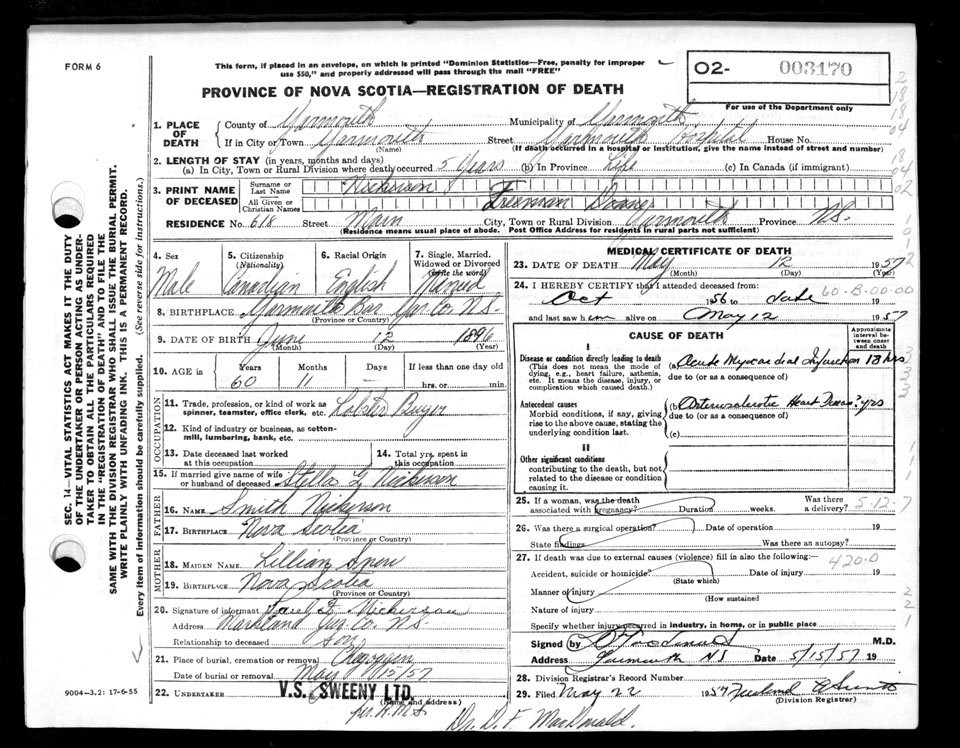 FORM 6
This form, if placed in an envelope, on which is printed "Dominion Statistics—Free, penalty for improper
use $50," and properly addressed will pass through the mail "FREE"
O2- 003170
For use of the Department only
PROVINCE OF NOVA SCOTIA—REGISTRATION OF DEATH
1. PLACE OF DEATH
County of Yarmouth Municipality of Yarmouth
If in City or Town Yarmouth Street Yarmouth Hospital House No.
(Name) (If death occurred in a hospital or institution, give the name instead of street and number)
2. LENGTH OF STAY (in years, months and days)
(a) In City, Town or Rural Division where death occurred 5 Years (b) In Province Life (c) In Canada (if immigrant)
3. PRINT NAME OF DECEASED
Surname or Last Name Nickerson
All Given or Christian Names Freeman Doane
RESIDENCE No. 618 Street Main City, Town or Rural Division Yarmouth Province N.S.
(Residence means usual place of abode. Post Office Address for residents in rural parts not sufficient)
4. Sex
Male
5. Citizenship (Nationality)
Canadian
6. Racial Origin
English
7. Single, Married, Widowed or Divorced (write the word)
Married
8. BIRTHPLACE Yarmouth Bar Yar. Co. N.S.
(Province or Country)
9. DATE OF BIRTH June 12 1896
(Month) (Day) (Year)
10. AGE in Years Months Days If less than one day old
60 11 — hrs. or min.
OCCUPATION
11. Trade, profession, or kind of work as spinner, teamster, office clerk, etc. Lobster Buyer
12. Kind of industry or business, as cotton-mill, lumbering, bank, etc.
13. Date deceased last worked at this occupation
14. Total yrs. spent in this occupation
15. If married give name of wife or husband of deceased Stella Nickerson
FATHER
16. Name Smith Nickerson
17. BIRTHPLACE Nova Scotia
(Province or Country)
MOTHER
18. MAIDEN NAME Lillian
19. BIRTHPLACE Nova Scotia
(Province or Country)
20. Signature of informant Nickerson
Address Yar. Co. N.S.
Relationship to deceased Son
21. Place of burial, cremation or removal Chegoggin
Date of burial or removal May 15/57
22. UNDERTAKER V.S. SWEENY LTD.
(Name and address)
MEDICAL CERTIFICATE OF DEATH
23. DATE OF DEATH May 12 1957
(Month) (Day) (Year)
24. I HEREBY CERTIFY that I attended deceased from:
Oct 1956 to date 19
60-B-00-00
and last saw him alive on May 12 1957
CAUSE OF DEATH
Approximate interval between onset and death
I
Disease or condition directly leading to death
(This does not mean the mode of dying, e.g., heart failure, asthenia, etc. It means the disease, injury, or complication which caused death.)
(a) Acute Myocardial Infarction 18 hrs
due to (or as a consequence of)
Antecedent causes
Morbid conditions, if any, giving rise to the above cause, stating the underlying condition last.
(b) Arteriosclerotic Heart Disease ? yrs
due to (or as a consequence of)
(c)
II
Other significant conditions
contributing to the death, but not related to the disease or condition causing it.
25. If a woman, was the death associated with pregnancy? Duration weeks. Was there a delivery?
5-12-7
26. Was there a surgical operation? Date of operation 19
State findings Was there an autopsy?
27. If death was due to external causes (violence) fill in also the following:
420.0
Accident, suicide or homicide? Date of injury 19
(State which)
Manner of injury
(How sustained)
Nature of injury
Specify whether injury occurred in industry, in home, or in public place
Signed by D F MacDonald M.D.
Address Yarmouth NS Date 5/15/57 19
28. Division Registrar's Record Number
29. Filed May 22 1957
(Division Registrar)
Dr. D. F. MacDonald.
9004—3.2: 17-6-55
SEC. 14—VITAL STATISTICS ACT MAKES IT THE DUTY
OF THE UNDERTAKER OR PERSON ACTING AS UNDER-
TAKER TO OBTAIN ALL THE PARTICULARS REQUIRED
IN THE "REGISTRATION OF DEATH" AND TO FILE THE
SAME WITH THE DIVISION REGISTRAR WHO SHALL ISSUE THE BURIAL PERMIT.
WRITE PLAINLY WITH UNFADING INK. THIS IS A PERMANENT RECORD.
Every item of information should be carefully supplied. (See reverse side for instructions.)